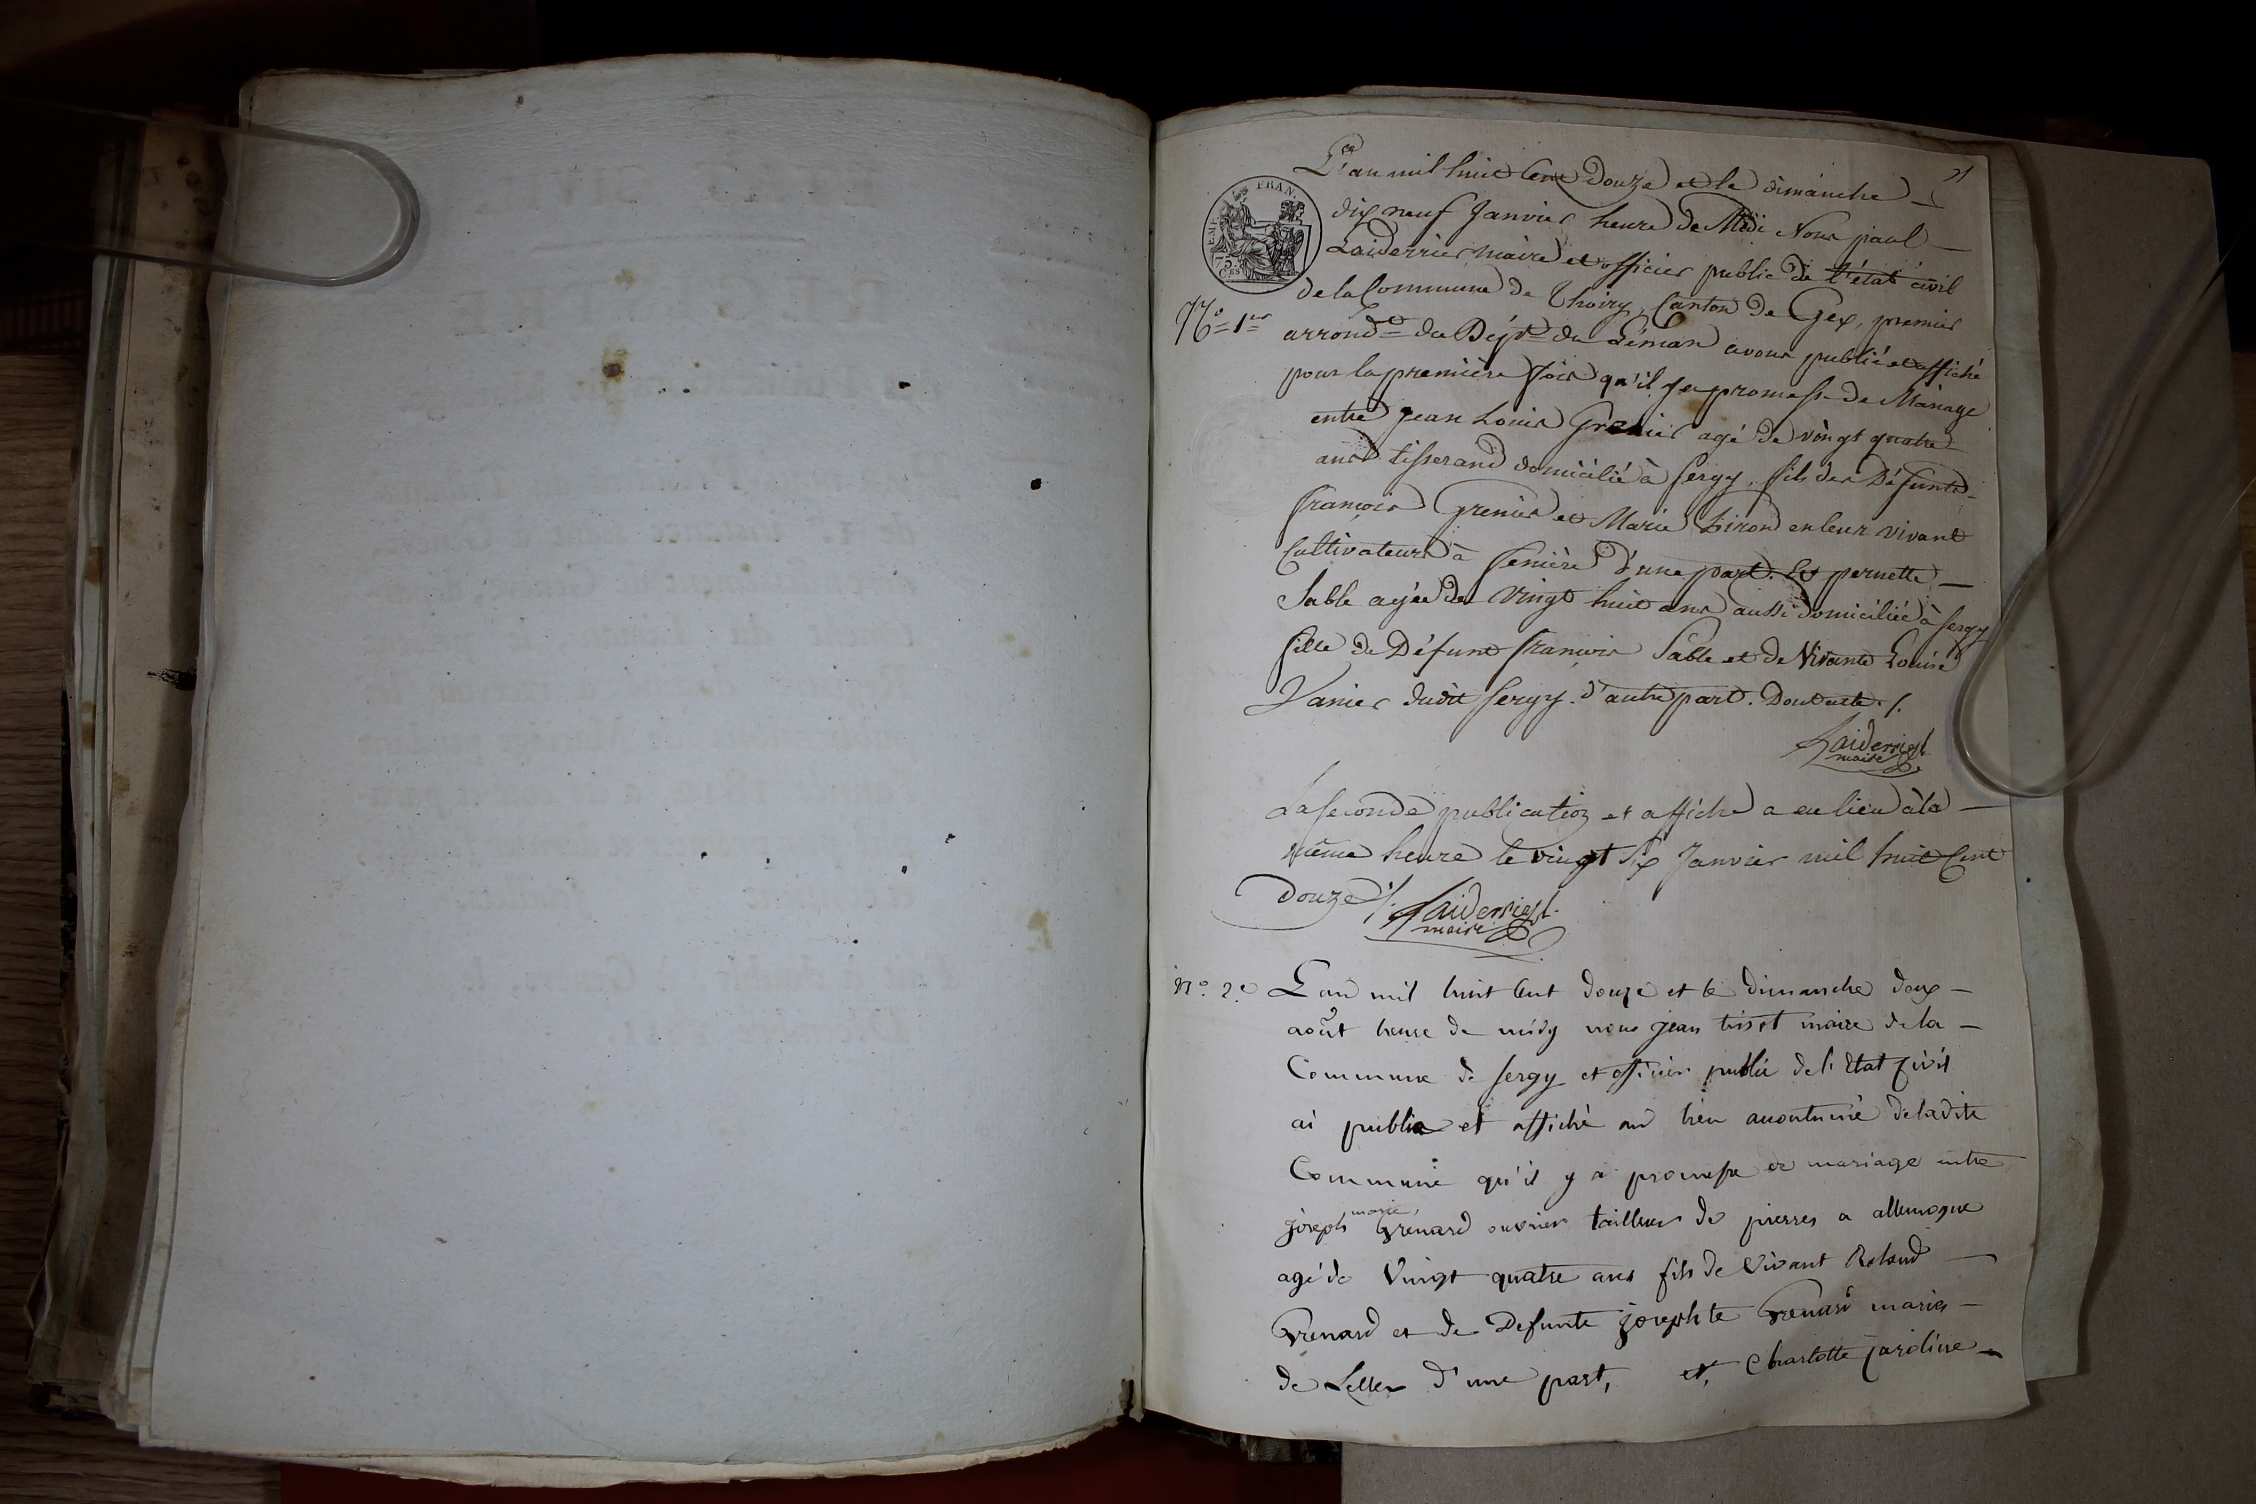 21
L'an mil huit cent douze et le dimanche
dix neuf Janvier heure de Midi Nous paul
EMP. FRAN.
75 CES
Laiderrier maire et officier public de l'état civil
de la Commune de Thoiry, Canton de Gex, premier
No. 1er
arrondt. du Dépt. du Léman avons publié et affiché
pour la première fois qu'il y a promesse de Mariage
entre Jean Louis Grenier agé de vingt quatre
ans tisserand domicilié à Sergy, fils des Défunts
françois Grenier et Marie en leur vivant
Cultivateurs à d'une part. Et pernette
Sable agée de Vingt huit ans aussi domiciliée à Sergy
fille de Défunt françois Sable et de Vivante Louise
Vanier dudit Sergy. d'autre part. Dont acte ./.
Laiderrier
maire
La seconde publication et affiche a eu lieu à la
même heure le vingt six Janvier mil huit Cent
Douze ./. Laiderrier
maire
No. 2e L'an mil huit Cent douze et le dimanche deux
août heure de midy nous jean tisset maire de la
Commune de Sergy et officier public de l'Etat Civil
ai publié et affiché au lieu acoutumé de ladite
Commune qu'il y a promesse de mariage entre
joseph marie Grenard ouvrier tailleur de pierres a allemogne
agé de Vingt quatre ans fils de Vivant Roland
Grenard et de Defunte josephte Grenard mariés
de Lelex d'une part, et, Charlotte